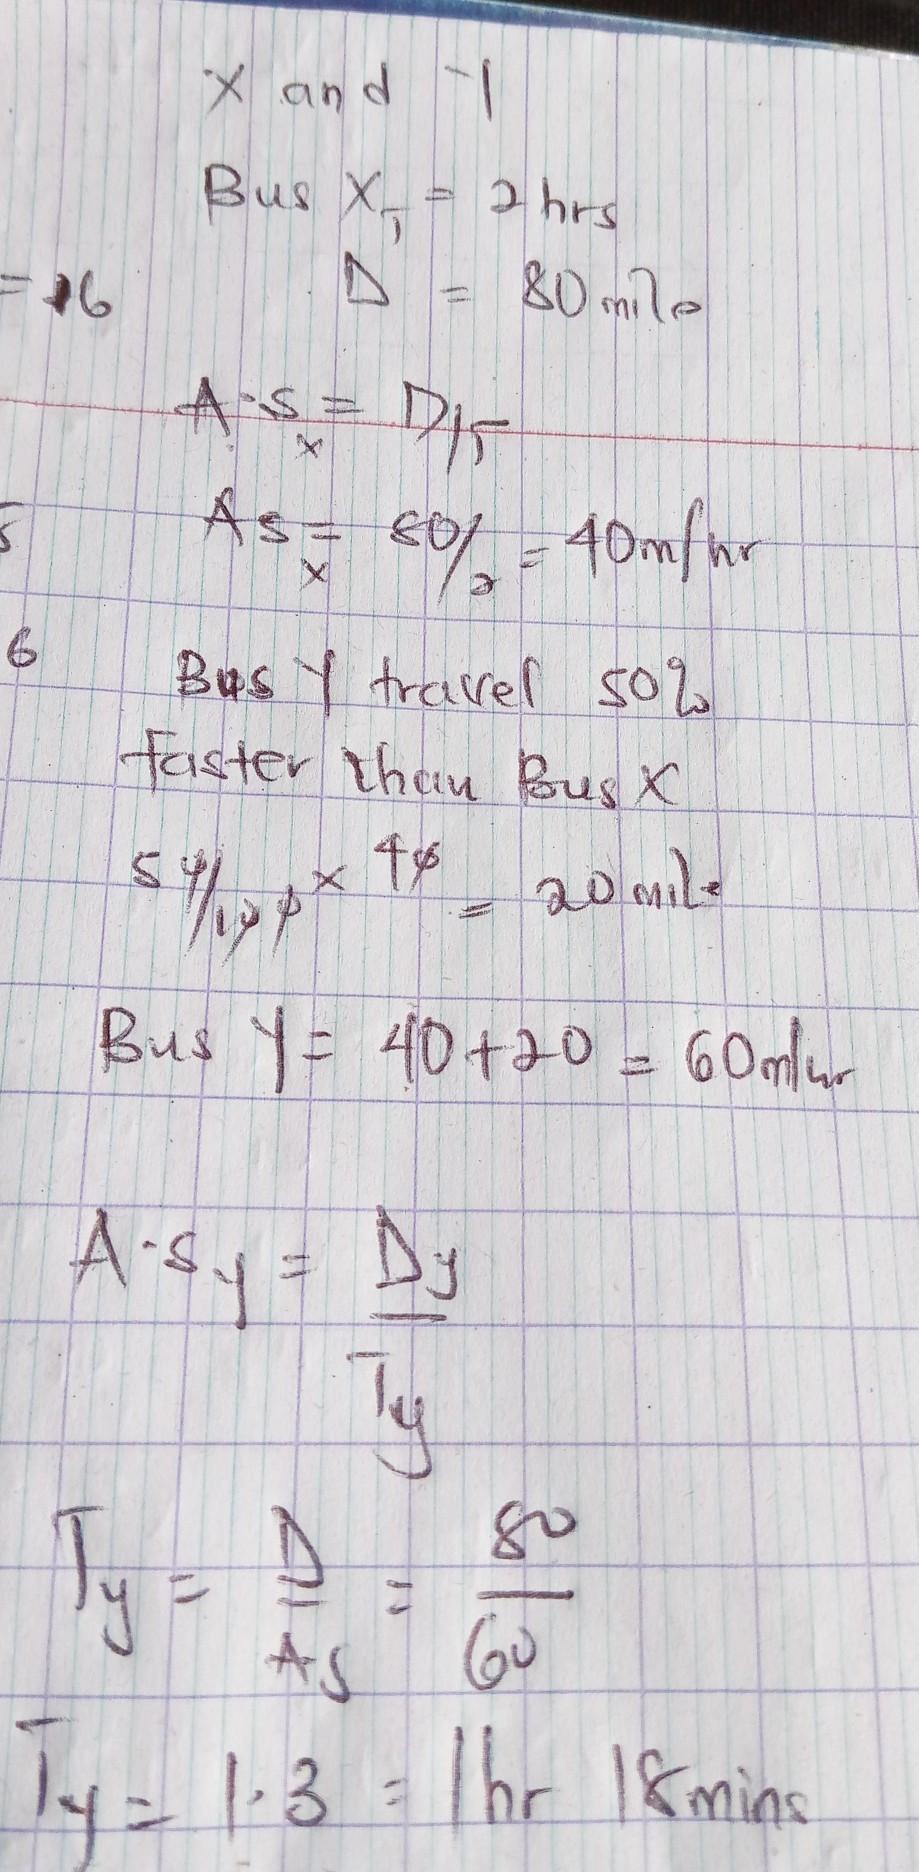 X and Y
Bus X_T = 2hrs
= 16
D = 80 mile
A.S_x = D/T
5
AS_x = 80/2 = 40m/hr
6
Bus Y travel 50%
Faster than Bus X
50/100 × 40 = 20 mile
Bus Y = 40+20 = 60m/hr
A.S_y = D_y/T_y
T_y = D/AS = 80/60
T_y = 1.3 = 1hr 18mins